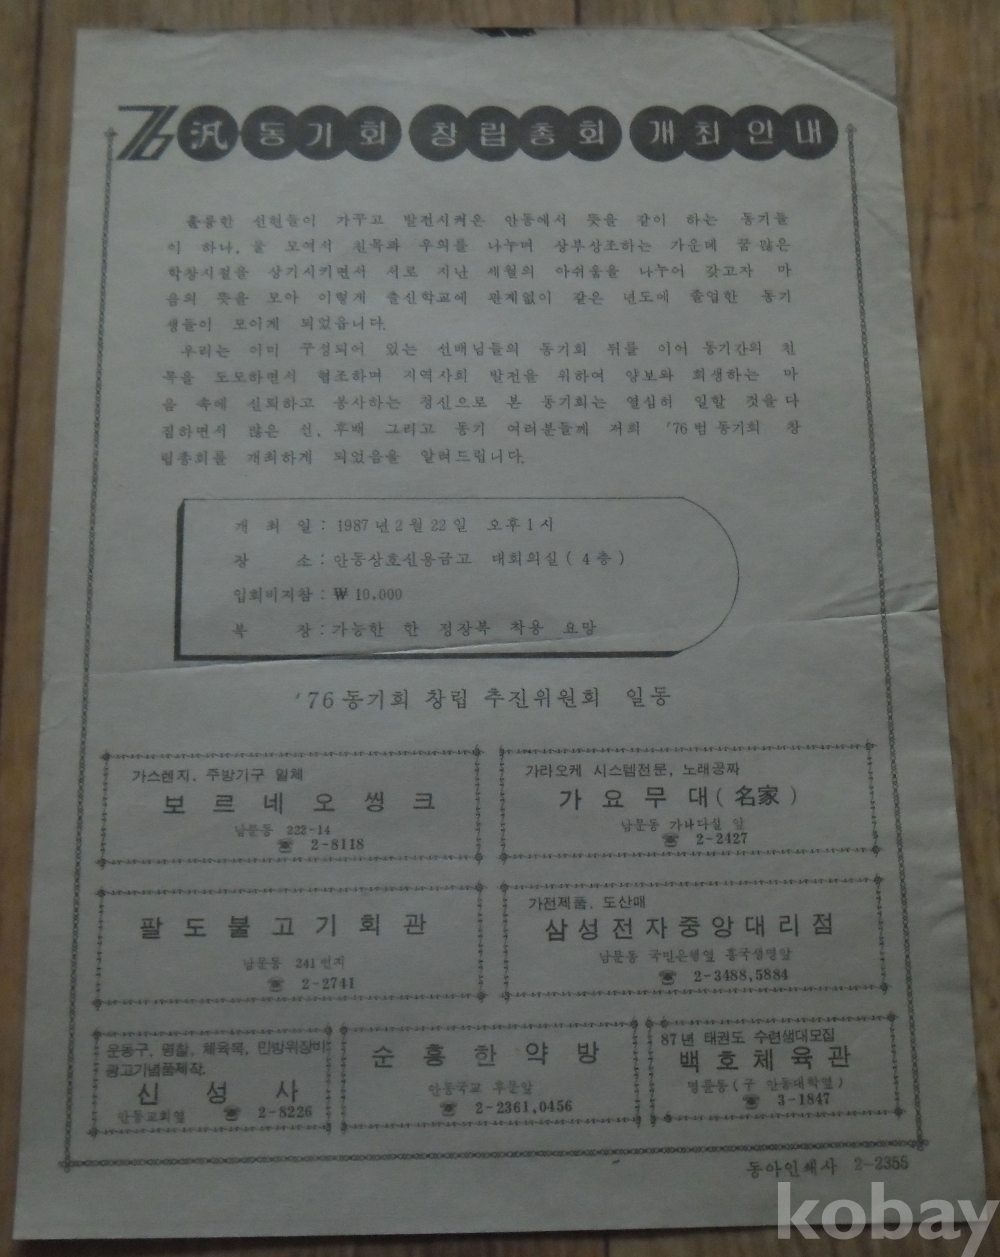 76汎동기회 창립총회 개최안내
훌륭한 선현들이 가꾸고 발전시켜온 안동에서 뜻을 같이 하는 동기들
이 하나, 둘 모여서 친목과 우의를 나누며 상부상조하는 가운데 꿈많은
학창시절을 상기시키면서 서로 지난 세월의 아쉬움을 나누어 갖고자 마
음의 뜻을 모아 이렇게 출신학교에 관계없이 같은 년도에 졸업한 동기
생들이 모이게 되었읍니다.
우리는 이미 구성되어 있는 선배님들의 동기회 뒤를 이어 동기간의 친
목을 도모하면서 협조하며 지역사회 발전을 위하여 양보와 희생하는 마
음 속에 신뢰하고 봉사하는 정신으로 본 동기회는 열심히 일할 것을 다
짐하면서 많은 선, 후배 그리고 동기 여러분들께 저희 '76범동기회 창
립총회를 개최하게 되었음을 알려드립니다.
개 최 일 : 1987년 2월 22일 오후 1시
장 소 : 안동상호신용금고 대회의실 ( 4층 )
입회비지참 : ₩ 10,000
복 장 : 가능한 한 정장복 착용 요망
'76동기회 창립 추진위원회 일동
가스렌지, 주방기구 일체
보르네오씽크
남문동 222-14
☎ 2-8118
가라오케 시스템전문, 노래공짜
가요무대(名家)
남문동 가나다살 앞
☎ 2-2427
팔도불고기회관
남문동 241번지
☎ 2-2741
가전제품, 도산매
삼성전자중앙대리점
남문동 국민은행옆 흥국생명앞
☎ 2-3488,5884
운동구, 명찰, 체육복, 민방위장비
광고기념품제작.
신성사
안동교회옆 ☎ 2-8226
순흥한약방
안동국교 후문앞
☎ 2-2361,0456
87년 태권도 수련생대모집
백호체육관
명륜동 ( 구 안동대학옆 )
☎ 3-1847
동아인쇄사 2-2355
kobay